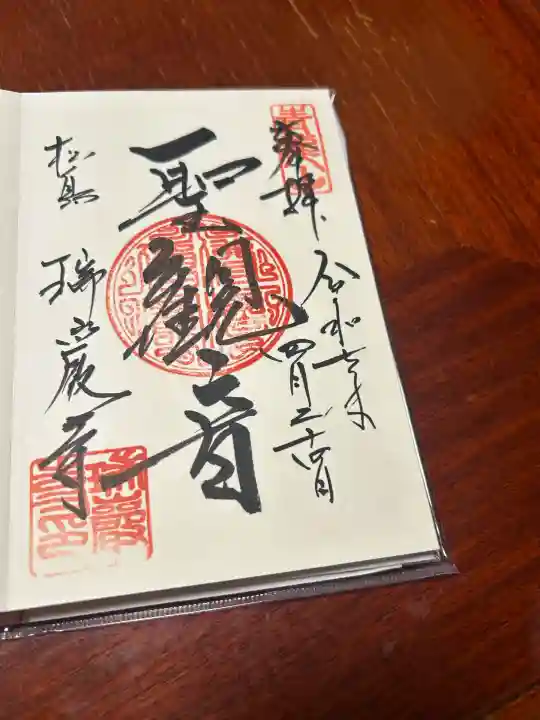 奉拝
令和七年
四月二十四日
聖観音
松島 瑞巌寺